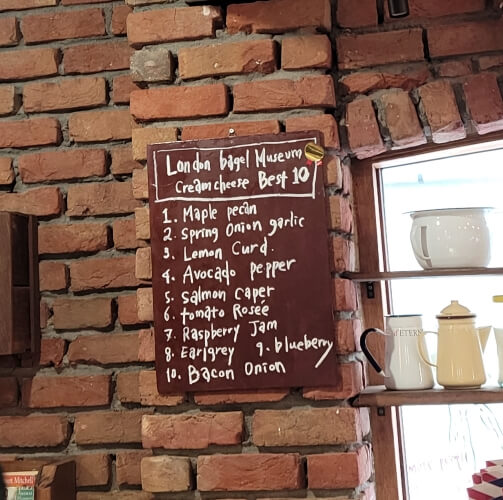 London bagel Museum
Creamcheese Best 10
1. Maple pecan
2. Spring Onion garlic
3. Lemon Curd.
4. Avocado pepper
5. Salmon caper
6. tomato Roseé
7. Raspberry Jam
8. Earlgrey 9. blueberry
10. Bacon Onion